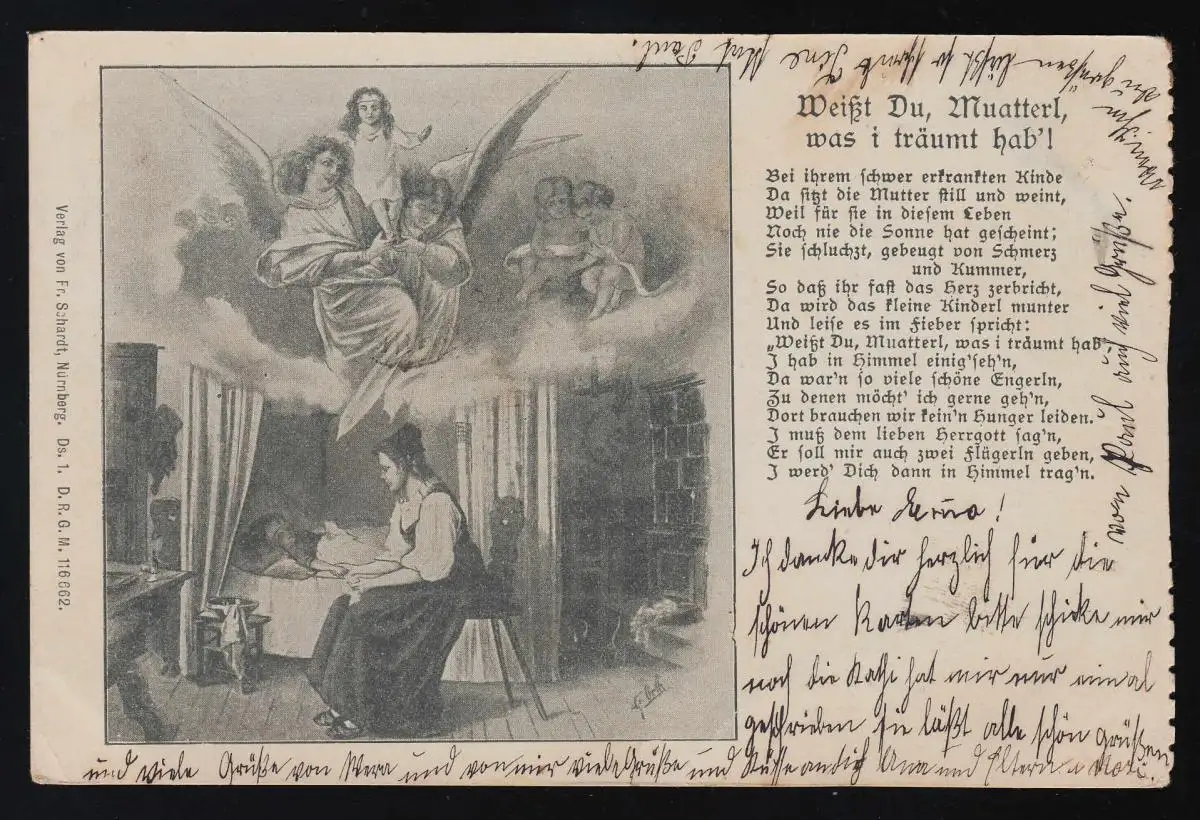 Weißt Du, Muatterl,
was i träumt hab'!
Bei ihrem schwer erkrankten Kinde
Da sitzt die Mutter still und weint,
Weil für sie in diesem Leben
Noch nie die Sonne hat gescheint;
Sie schluchzt, gebeugt von Schmerz
und Kummer,
So daß ihr fast das Herz zerbricht,
Da wird das kleine Kinderl munter
Und leise es im Fieber spricht:
„Weißt Du, Muatterl, was i träumt hab'
J hab in Himmel einig'seh'n,
Da war'n so viele schöne Engerln,
Zu denen möcht' ich gerne geh'n,
Dort brauchen wir kein'n Hunger leiden.
J muß dem lieben Herrgott sag'n,
Er soll mir auch zwei Flügerln geben,
J werd' Dich dann in Himmel trag'n.
Verlag von Fr. Schardt, Nürnberg. Ds. 1. D. R. G. M. 116662.
Liebe
Ich danke dir herzlich für die
schönen Karten bitte schicke mir
noch die Kathi hat mir nur einmal
geschrieben sie läßt alle schön grüßen
und viele Grüße von Wera und von mir viele Grüße und Küsse an dich und Eltern
von Paul auch viel Grüße.